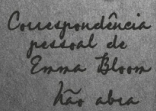 Correspondência
pessoal de
Emma Bloom
Não abra